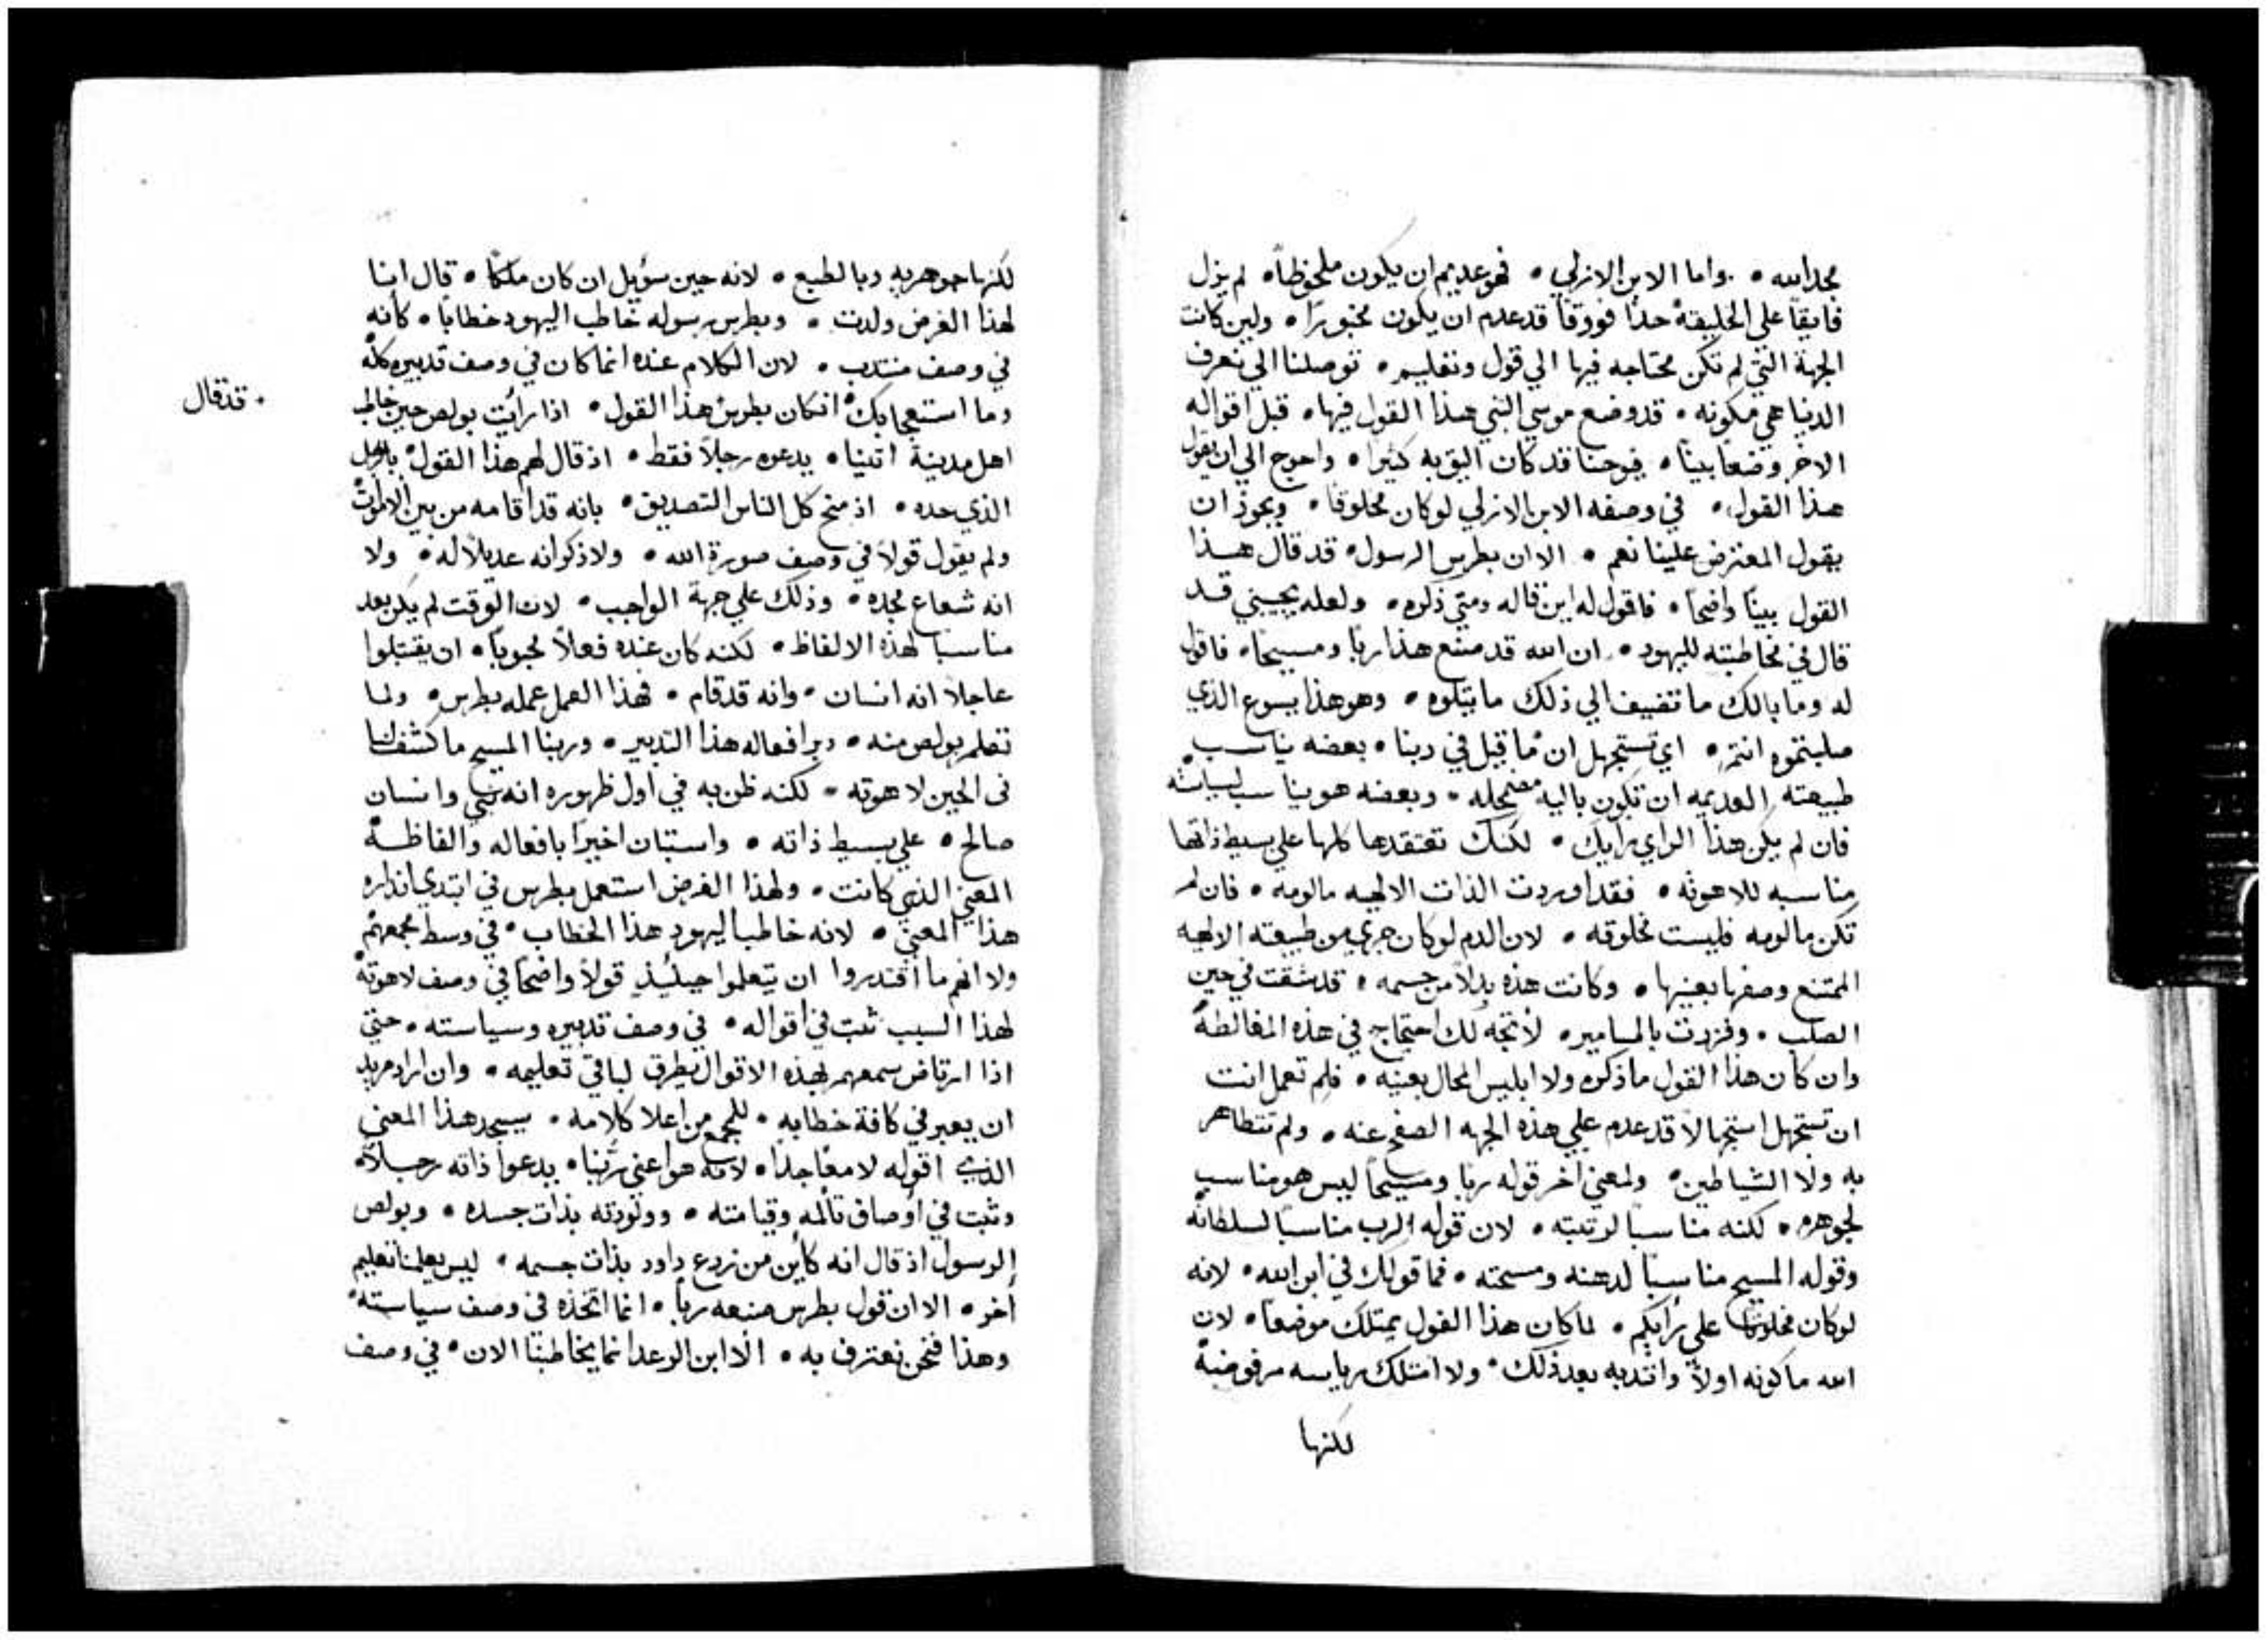 مجد الله • واما الابن الازلي • فهو عديم ان يكون ملحوظاً • لم يزل
فايقاً على الخليقة جداً فووقاً قد عدم ان يكون مخبوراً • ولين كانت
الجهة التي لم تكن محتاجه فيها الي قول وتعليم • توصلنا الي تعرف
الدنيا هي مكونه • قد وضع موسي النبي هذا القول فيها • قبل اقواله
الاخر وضعاً بيناً • فيوحنا قد كان اليق به كثيراً • واحوج الي ان يقول
هذا القول • في وصفه الابن الازلي لو كان مخلوقا • ويجوز ان
يقول المعترض علينا نعم • الا ان بطرس الرسول • قد قال هذا
القول بيناً واضحاً • فاقول له اين قاله ومتي ذكره • ولعله يجيبني قد
قال في مخاطبته لليهود • ان الله قد صنع هذا ربا ومسيحا • فاقول
له وما بالك ما تضيف الي ذلك ما يتلوه • وهو هذا يسوع الذي
صلبتموه انتم • اي تستجهل ان ما قيل في ربنا • بعضه يناسب
طبيعته العديمه ان تكون باليه مضمحله • وبعضه هو يناسب لسياسته
فان لم يكن هذا الراي رايك • لكنك تعتقدها كلها علي بسيط ذاتها
مناسبه للاهوته • فقد اوردت الذات الالهيه مالومه • فان لم
تكن مالومه فليست مخلوقه • لان الدم لو كان جري من طبيعته الالهيه
الممتنع وصفها بعينها • وكانت هذه بدلاً من جسمه • قد شقت في حين
الصلب • وفزرت بالمسامير • لاتجه لك احتجاج في هذه المغالطة
وان كان هذا القول ما ذكره ولا ابليس المحال بعينه • فلم تعمل انت
ان تستجهل استجهالاً قد عدم علي هذه الجهه الصفح عنه • ولم تتظاهر
به ولا الشياطين • ولمعني اخر قوله ربا ومسيحاً ليس هو مناسب
لجوهره • لكنه مناسباً لرتبته • لان قوله الرب مناسباً لسلطانه
وقوله المسيح مناسباً لدهنه ومسحته • فما قولك في ابن الله • لانه
لو كان مخلوقاً علي رايكم • لما كان هذا القول يمتلك موضعاً • لان
الله ما كونه اولاً وانتدبه بعد ذلك • ولا امتلك رياسه مرفوضة
لكنها
لكنها جوهريه وبالطبع • لانه حين سؤيل ان كان ملكاً • قال انا
لهذا الغرض ولدت • وبطرس رسوله خاطب اليهود خطاباً • كانه
في وصف منتدب • لان الكلام عنده انما كان في وصف تدبيره كله
وما استعجابك انكان بطرس هذا القول • اذا رايت بولص حين خاطب
• قد قال
اهل مدينة اتنيا • يدعوه رجلاً فقط • اذ قال لهم هذا القول بالرجل
الذي حده • اذ منح كل الناس التصديق • بانه قد اقامه من بين الاموات
ولم يقول قولاً في وصف صورة الله • ولا ذكر انه عديلاً له • ولا
انه شعاع مجده • وذلك علي جهة الواجب • لان الوقت لم يكن بعد
مناسبا لهذه الالفاظ • لكنه كان عنده فعلاً محبوباً • ان يقتبلوا
عاجلاً انه انسان • وانه قد قام • فهذا العمل عمله بطرس • ولما
تعلم بولص منه • دبر افعاله هذا التدبير • وربنا المسيح ما كشف لنا
في الحين لاهوته • لكنه ظن به في اول ظهوره انه نبي وانسان
صالح • علي بسيط ذاته • واستبان اخيراً بافعاله والفاظه
المعني الذي كانت • ولهذا الغرض استعمل بطرس في ابتدي انذاره
هذا المعني • لانه خاطب اليهود هذا الخطاب • في وسط مجمعهم
ولا انهم ما اقتدروا ان يتعلموا حينيذ قولاً واضحاً في وصف لاهوته
لهذا السبب ثبت في اقواله • في وصف تدبيره وسياسته • حتي
اذا ارتاض سمعهم لهذه الاقوال يطرق لباقي تعليمه • وان اراد مريد
ان يعبر في كافة خطابه • للجمع من اعلا كلامه • سيجد هذا المعني
الذي اقوله لامعاً جداً • لانه هو اعني ربنا • يدعوا ذاته رجلاً
وثبت في اوصاف تالمه وقيامته • وولودته بذات جسده • وبولص
الرسول اذ قال انه كاين من زرع داود بذات جسمه • ليس يعلمنا تعليم
اخر • الا ان قول بطرس صنعه رباً • انما اتخذه في وصف سياسته
وهذا فنحن نعترف به • الا ابن الرعد انما يخاطبنا الان • في وصف